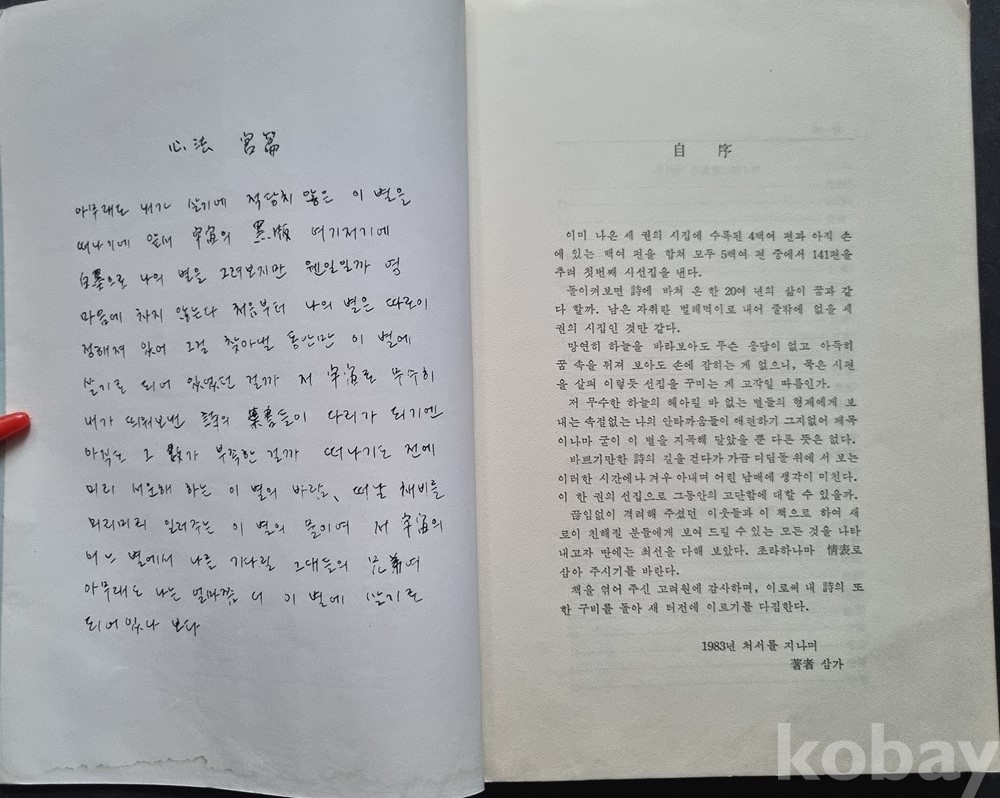 心法 宮篇
아무래도 내가 살기에 적당치 않은 이 별을
떠나기에 앞서 宇宙의 黑版 여기저기에
白墨으로 나의 별을 그려보지만 웬일일까 영
마음에 차지 않는다 처음부터 나의 별은 따로이
정해져 있어 그걸 찾아낼 동안만 이 별에
살기로 되어 있었던 걸까 저 宇宙로 무수히
내가 띄워보낸 詩의 葉書들이 다리가 되기엔
아직도 그 數가 부족한 걸까 떠나기도 전에
미리 서운해 하는 이 별의 바람, 떠날 채비를
미리미리 일러주는 이 별의 물이여 저 宇宙의
어느 별에서 나를 기다릴 그대들의 兄弟여
아무래도 나는 얼마쯤 더 이 별에 살기로
되어있나 보다
自序
이미 나온 세 권의 시집에 수록된 4백여 편과 아직 손
에 있는 백여 편을 합쳐 모두 5백여 편 중에서 141편을
추려 첫번째 시선집을 낸다.
돌이켜보면 詩에 바쳐 온 한 20여 년의 삶이 꿈과 같
다 할까. 남은 자취란 벌레먹이로 내어 줄밖에 없을 세
권의 시집인 것만 같다.
망연히 하늘을 바라보아도 무슨 응답이 없고 아득히
꿈 속을 뒤져 보아도 손에 잡히는 게 없으니, 묵은 시편
을 살펴 이렇듯 선집을 꾸미는 게 고작일 따름인가.
저 무수한 하늘의 헤아릴 바 없는 별들의 형제에게 보
내는 속절없는 나의 안타까움들이 애련하기 그지없어 제목
이나마 굳이 이 별을 지목해 달았을 뿐 다른 뜻은 없다.
바르기만한 詩의 길을 걷다가 가끔 디딤돌 위에 서 보는
이러한 시간에나 겨우 아내며 어린 남매에 생각이 미친다.
이 한 권의 선집으로 그동안의 고단함에 대할 수 있을까.
끊임없이 격려해 주셨던 이웃들과 이 책으로 하여 새
로이 친해질 분들에게 보여 드릴 수 있는 모든 것을 나타
내고자 딴에는 최선을 다해 보았다. 초라하나마 情表로
삼아 주시기를 바란다.
책을 엮어 주신 고려원에 감사하며, 이로써 내 詩의 또
한 구비를 돌아 새 터전에 이르기를 다짐한다.
1983년 처서를 지나며
著者 삼가
kobay